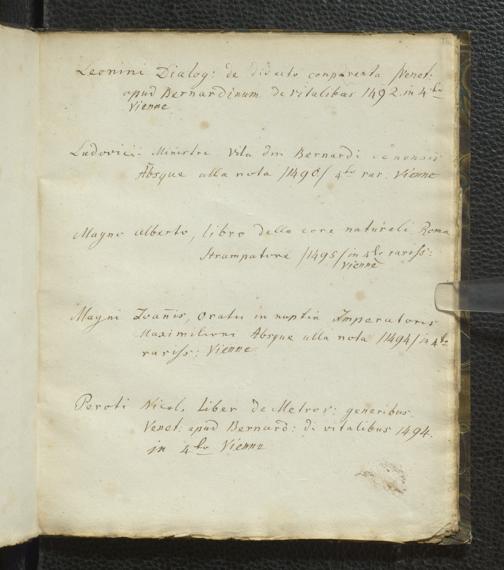 Leonini Dialog: de conparenta Venet:
apud Bernardinum de vitalibus 1492 in 4to
Vienne
Ludovici Ministri Vita dni Bernardi senensis
Absque ulla nota /1490/ 4to rar. Vienne
Magno Alberto, libro delle cose naturali Roma
Stampatore /1495/ in 4to rariss:
Vienne
Magni Ioanis, oratio in nuptin Imperatoris
Maximiliani Absque ulla nota /1494/ in 4to
rariss: Vienne
Peroti Nicol. Liber de Metror: generibus.
Venet. apud Bernard: di vitalibus 1494.
in 4to Vienne